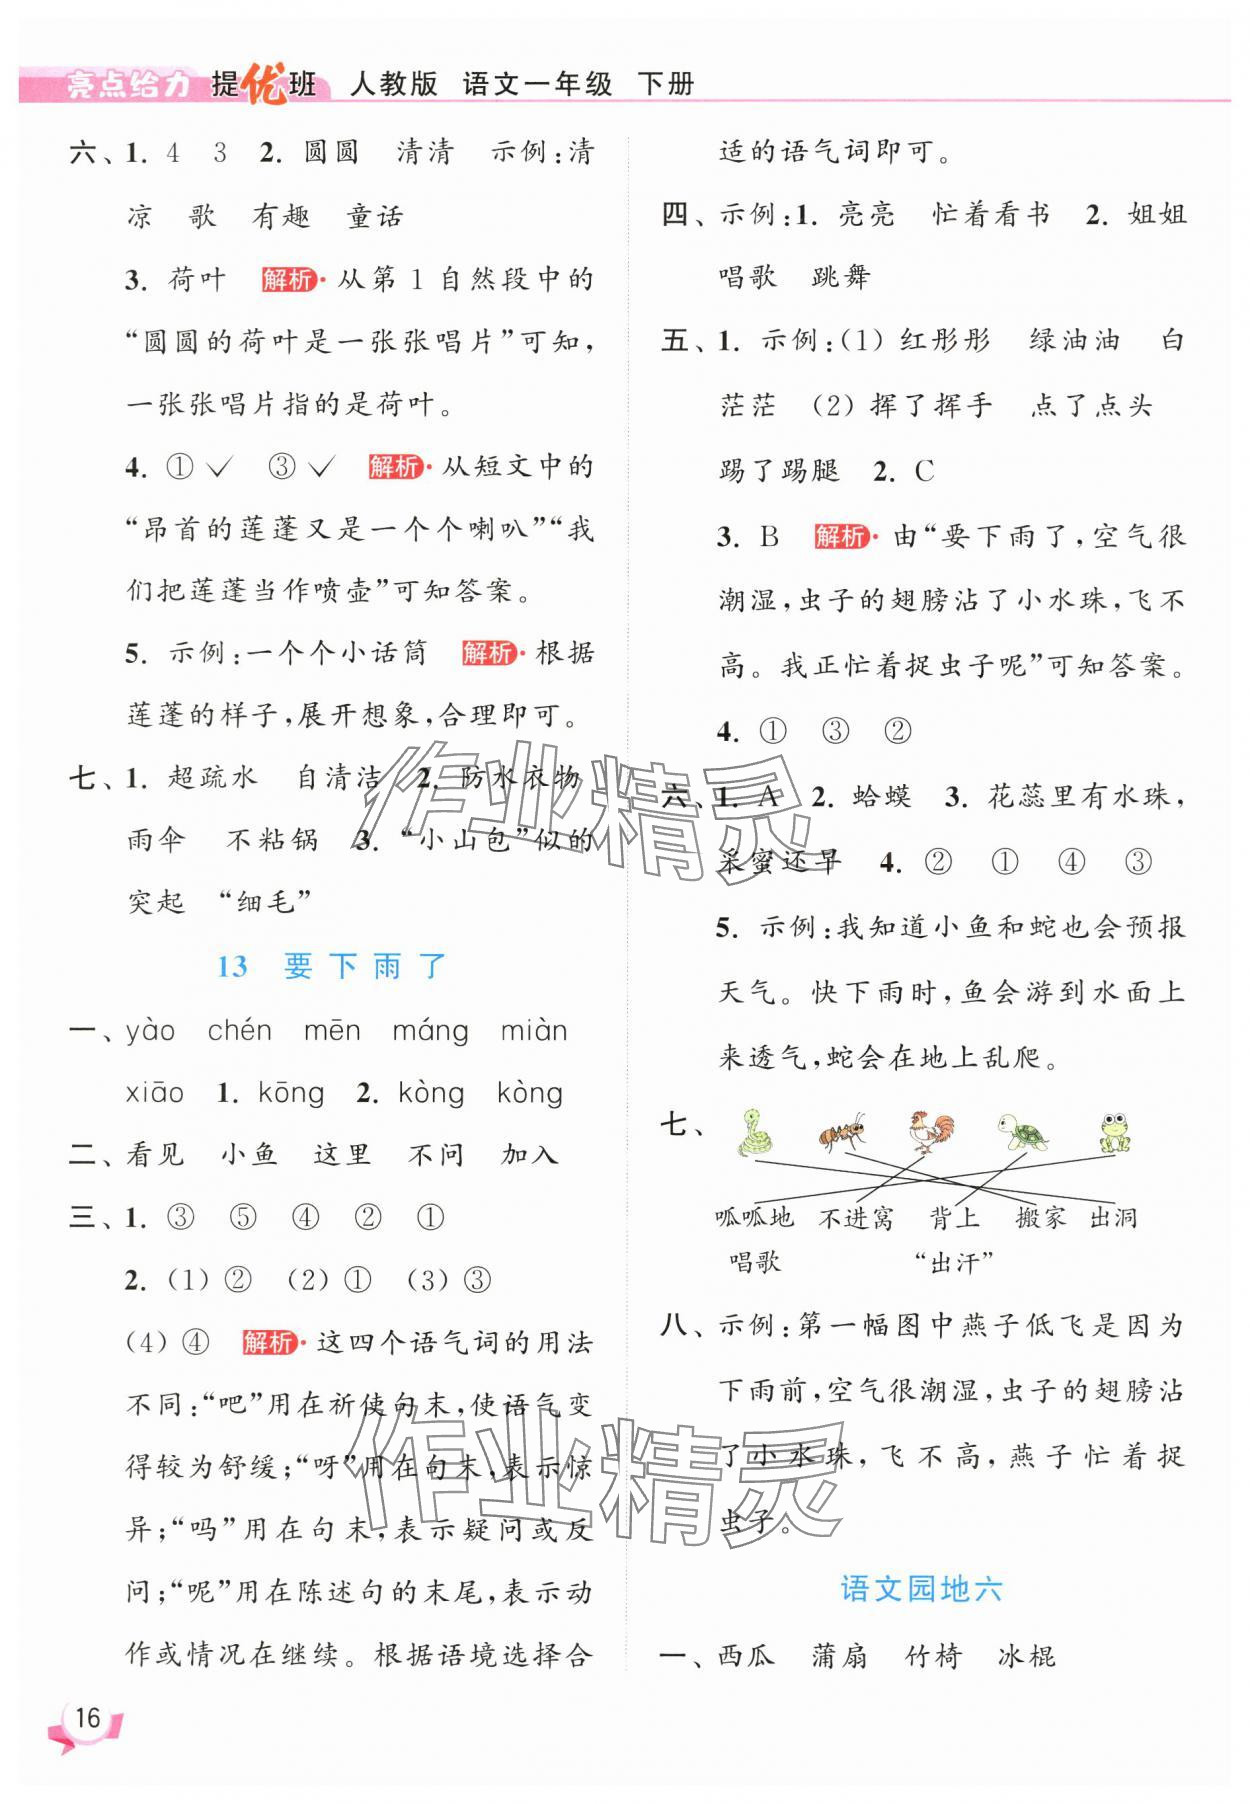 亮点给力 提优班 人教版 语文一年级 下册
六、1. 4 3 2. 圆圆 清清 示例:清
凉 歌 有趣 童话
3. 荷叶 解析·从第1自然段中的
“圆圆的荷叶是一张张唱片”可知,
一张张唱片指的是荷叶。
4. ①✓ ③✓ 解析·从短文中的
“昂首的莲蓬又是一个个喇叭”“我
们把莲蓬当作喷壶”可知答案。
5. 示例:一个个小话筒 解析·根据
莲蓬的样子,展开想象,合理即可。
七、1. 超疏水 自清洁 2. 防水衣物
雨伞 不粘锅 3. “小山包”似的
突起 “细毛”
13 要下雨了
一、yào chén mēn máng miàn
xiāo 1. kōng 2. kòng kòng
二、看见 小鱼 这里 不问 加入
三、1. ③ ⑤ ④ ② ①
2. (1)② (2)① (3)③
(4)④ 解析·这四个语气词的用法
不同:“吧”用在祈使句末,使语气变
得较为舒缓;“呀”用在句末,表示惊
异;“吗”用在句末,表示疑问或反
问;“呢”用在陈述句的末尾,表示动
作或情况在继续。根据语境选择合
适的语气词即可。
四、示例:1. 亮亮 忙着看书 2. 姐姐
唱歌 跳舞
五、1. 示例:(1)红彤彤 绿油油 白
茫茫 (2)挥了挥手 点了点头
踢了踢腿 2. C
3. B 解析·由“要下雨了,空气很
潮湿,虫子的翅膀沾了小水珠,飞不
高。我正忙着捉虫子呢”可知答案。
4. ① ③ ②
六、1. A 2. 蛤蟆 3. 花蕊里有水珠,
采蜜还早 4. ② ① ④ ③
5. 示例:我知道小鱼和蛇也会预报
天气。快下雨时,鱼会游到水面上
来透气,蛇会在地上乱爬。
七、
呱呱地 不进窝 背上 搬家 出洞
唱歌 “出汗”
八、示例:第一幅图中燕子低飞是因为
下雨前,空气很潮湿,虫子的翅膀沾
了小水珠,飞不高,燕子忙着捉
虫子。
语文园地六
一、西瓜 蒲扇 竹椅 冰棍
16
作业精灵
作业精灵